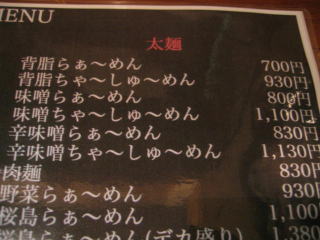 MENU
太麺
背脂らぁ～めん 700円
背脂ちゃ～しゅ～めん 930円
味噌らぁ～めん 800円
味噌ちゃ～しゅ～めん 1,100円
辛味噌らぁ～めん 830円
辛味噌ちゃ～しゅ～めん 1,130円
肉麺 830円
野菜らぁ～めん 930円
桜島らぁ～めん 1,100
桜島らぁ～めん(デカ盛り) 1,380